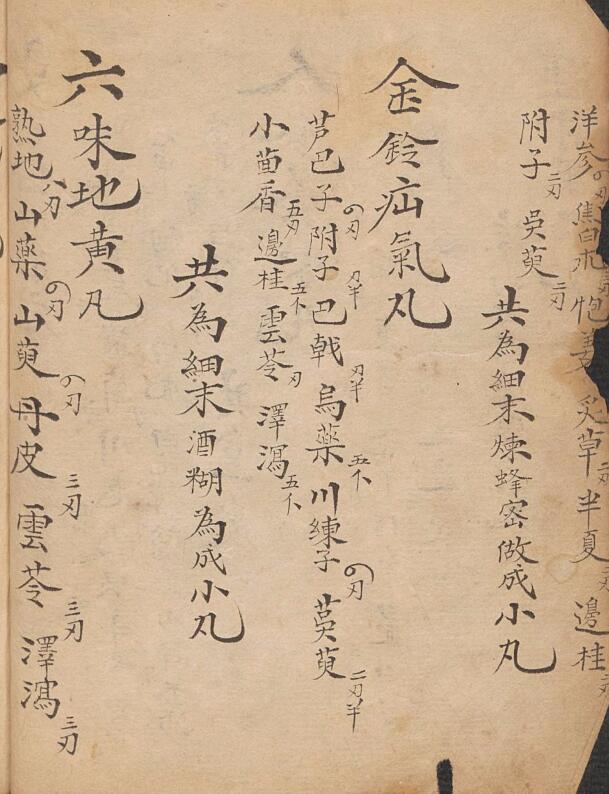 洋參四刃焦白朮 炮姜 炙草二刃半夏二刃邊桂二刃
附子二刃吳萸二刃共為細末煉蜂密做成小丸
金鈴疝氣丸
芦巴子四刃附子刃半巴戟刃半烏藥五个川練子四刃萸萸二刃半
小茴香五刃邊桂五个雲苓刃澤瀉五个
共為細末酒糊為成小丸
六味地黃丸
熟地八刃山藥四刃山萸四刃丹皮三刃雲苓三刃澤瀉三刃